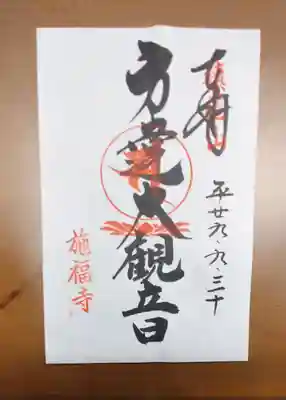 奉拝
平廿九・九・三十
方違大観音
施福寺